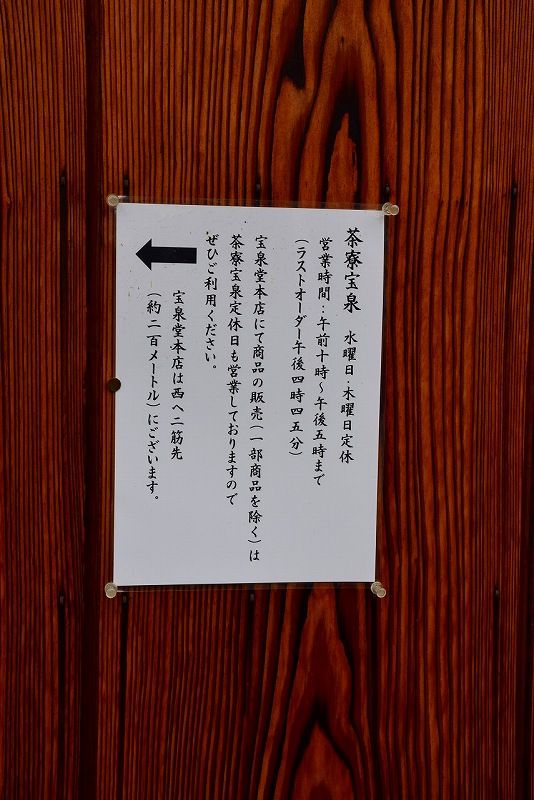 茶寮宝泉　水曜日・木曜日定休
営業時間：午前十時～午後五時まで
（ラストオーダー午後四時四五分）
宝泉堂本店にて商品の販売（一部商品を除く）は
茶寮宝泉定休日も営業しておりますので
ぜひご利用ください。
宝泉堂本店は西へ二筋先
（約二百メートル）にございます。